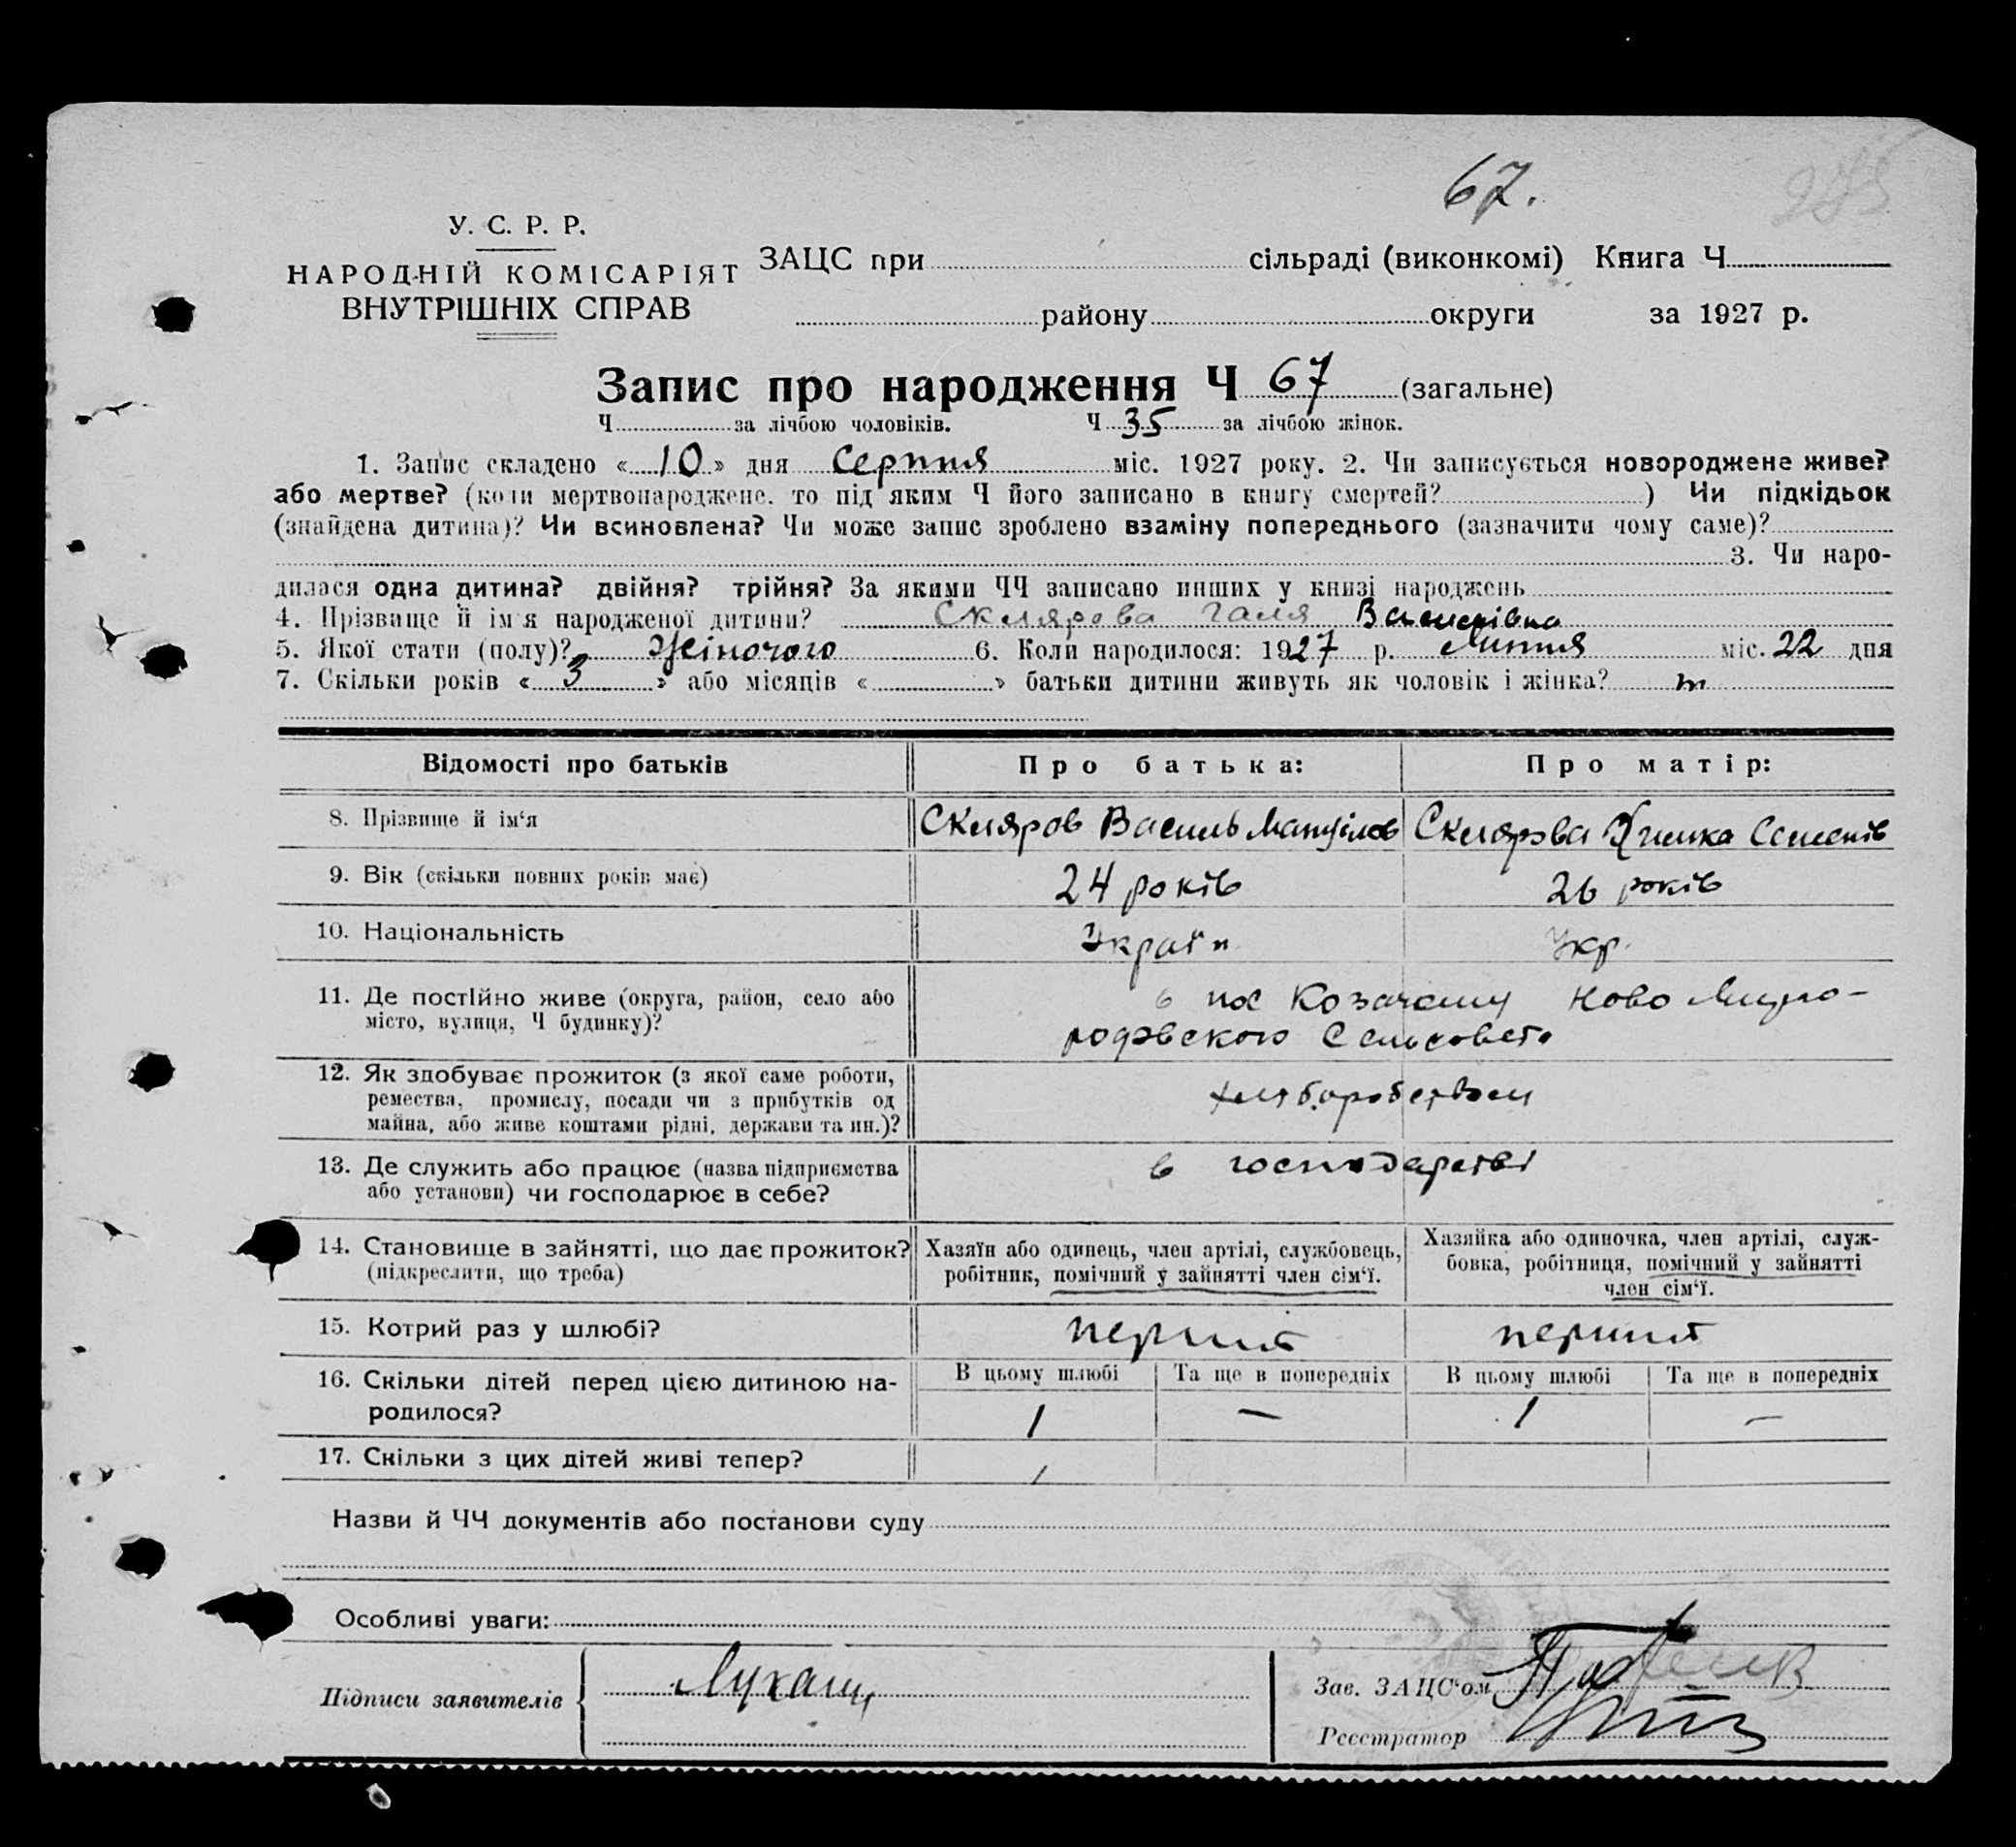 67.
275
У. С. Р. Р.
НАРОДНІЙ КОМІСАРІЯТ
ВНУТРІШНІХ СПРАВ
ЗАЦС при сільраді (виконкомі) Книга Ч
району округи за 1927 р.
Запис про народження Ч 67 (загальне)
Ч за лічбою чоловіків. Ч 35 за лічбою жінок.
1. Запис складено « 10 » дня Серпня міс. 1927 року. 2. Чи записується новороджене живе?
або мертве? (коли мертвонароджене. то під яким Ч його записано в книгу смертей? ) Чи підкідьок
(знайдена дитина)? Чи всиновлена? Чи може запис зроблено взаміну попереднього (зазначити чому саме)?
3. Чи наро-
дилася одна дитина? двійня? трійня? За якими ЧЧ записано инших у книзі народжень
4. Прізвище й ім'я народженої дитини? Склярова Галя Василівна
5. Якої стати (полу)? Жіночого 6. Коли народилося: 1927 р. Липня міс. 22 дня
7. Скільки років « 3 » або місяців « » батьки дитини живуть як чоловік і жінка?
Відомості про батьків Про батька: Про матір:
8. Прізвище й ім‘я Скляров Василь Склярова
9. Вік (скільки повних років має) 24 років 26 років
10. Національність Україн Укр.
11. Де постійно живе (округа, район, село або
місто, вулиця, Ч будинку)?
в пос Козачому Ново
Сельсовета
12. Як здобуває прожиток (з якої саме роботи,
ремества, промислу, посади чи з прибутків од
майна, або живе коштами рідні, держави та ин.)?
хліборобством
13. Де служить або працює (назва підприємства
або установи) чи господарює в себе?
в господарстві
14. Становище в зайнятті, що дає прожиток?
(підкреслити, що треба)
Хазяїн або одинець, член артілі, службовець,
робітник, помічний у зайнятті член сім‘ї.
Хазяйка або одиночка, член артілі, служ-
бовка, робітниця, помічний у зайнятті
член сім‘ї.
15. Котрий раз у шлюбі? перший перший
16. Скільки дітей перед цією дитиною на-
родилося?
В цьому шлюбі Та ще в попередніх В цьому шлюбі Та ще в попередніх
1 — 1 —
17. Скільки з цих дітей живі тепер? 1
Назви й ЧЧ документів або постанови суду
Особливі уваги:
Підписи заявителів
Зав. ЗАЦС‘ом
Реєстратор